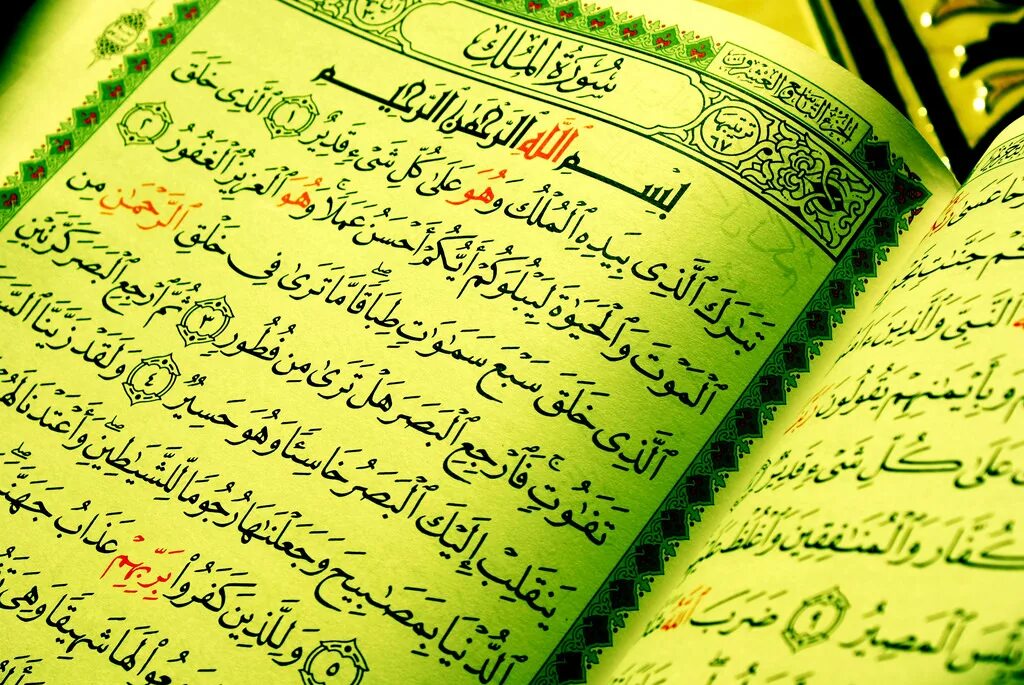 سُورَةُ المُلْكِ
الجزء التاسع والعشرون
ترتيبها
بِسْمِ ٱللَّهِ ٱلرَّحْمَٰنِ ٱلرَّحِيمِ
تَبَٰرَكَ ٱلَّذِى بِيَدِهِ ٱلْمُلْكُ وَهُوَ عَلَىٰ كُلِّ شَىْءٍ قَدِيرٌ ١ ٱلَّذِى خَلَقَ
ٱلْمَوْتَ وَٱلْحَيَوٰةَ لِيَبْلُوَكُمْ أَيُّكُمْ أَحْسَنُ عَمَلًا ۚ وَهُوَ ٱلْعَزِيزُ ٱلْغَفُورُ ٢
ٱلَّذِى خَلَقَ سَبْعَ سَمَٰوَٰتٍ طِبَاقًا ۖ مَّا تَرَىٰ فِى خَلْقِ ٱلرَّحْمَٰنِ مِن
تَفَٰوُتٍ ۖ فَٱرْجِعِ ٱلْبَصَرَ هَلْ تَرَىٰ مِن فُطُورٍ ٣ ثُمَّ ٱرْجِعِ ٱلْبَصَرَ كَرَّتَيْنِ
يَنقَلِبْ إِلَيْكَ ٱلْبَصَرُ خَاسِئًا وَهُوَ حَسِيرٌ ٤ وَلَقَدْ زَيَّنَّا
ٱلدُّنْيَا بِمَصَٰبِيحَ وَجَعَلْنَٰهَا رُجُومًا لِّلشَّيَٰطِينِ ۖ وَأَعْتَدْنَا لَهُمْ
٥ وَلِلَّذِينَ كَفَرُوا۟ بِرَبِّهِمْ عَذَابُ
لَهَا شَهِيقًا وَهِىَ
ٱلنَّبِىَّ وَٱلَّذِينَ
وَبِأَيْمَٰنِهِمْ يَقُولُونَ
عَلَىٰ كُلِّ شَىْءٍ قَدِيرٌ
وَٱلْمُنَٰفِقِينَ وَٱغْلُظْ
ٱلْمَصِيرُ ٩ ضَرَبَ ٱللَّهُ